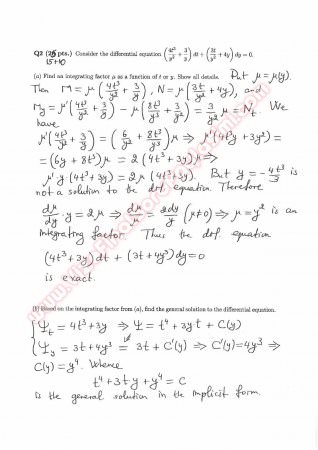 Q2 (25 pts.) Consider the differential equation (4t³/y² + 3/y) dt + (3t/y² + 4y) dy = 0.
15+10
(a) Find an integrating factor μ as a function of t or y. Show all details. Put μ = μ(y).
Then M = μ(4t³/y² + 3/y), N = μ(3t/y² + 4y), and
My = μ'(4t³/y² + 3/y) - μ(8t³/y³ + 3/y²) = μ 3/y² = N't. We
have
μ'(4t³/y² + 3/y) = (6/y² + 8t³/y³)μ ⇒ μ'(4t³y + 3y²) =
= (6y + 8t³)μ = 2(4t³ + 3y)μ ⇒
μ'·y(4t³ + 3y) = 2μ(4t³ + 3y). But y = -4t³/3 is
not a solution to the dif. equation. Therefore
dμ/dy · y = 2μ ⇒ dμ/μ = 2dy/y (μ≠0) ⇒ μ = y² is an
integrating factor. Thus the dif. equation
(4t³ + 3y)dt + (3t + 4y³)dy = 0
is exact.
(b) Based on the integrating factor from (a), find the general solution to the differential equation.
{ Ψt = 4t³ + 3y ⇒ Ψ = t⁴ + 3yt + C(y)
Ψy = 3t + 4y³ = 3t + C'(y) ⇒ C'(y) = 4y³ ⇒
C(y) = y⁴. Whence
t⁴ + 3ty + y⁴ = C
is the general solution in the implicit form.